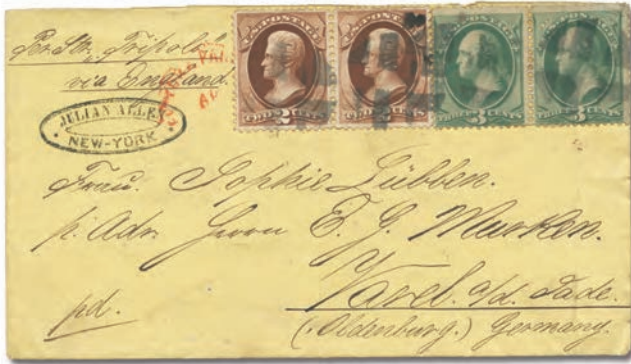 Per Str. "Tripoli"
via England
JULIAN ALLEN
NEW-YORK
U.S. POSTAGE
TWO 2 CENTS
U.S. POSTAGE
THREE 3 CENTS
THREE 3 CENTS
Frau. Sophie Lübben.
p. Adr. Herrn E. G. Murken.
Varel. a/d. Jade.
(Oldenburg.) Germany.
pd.